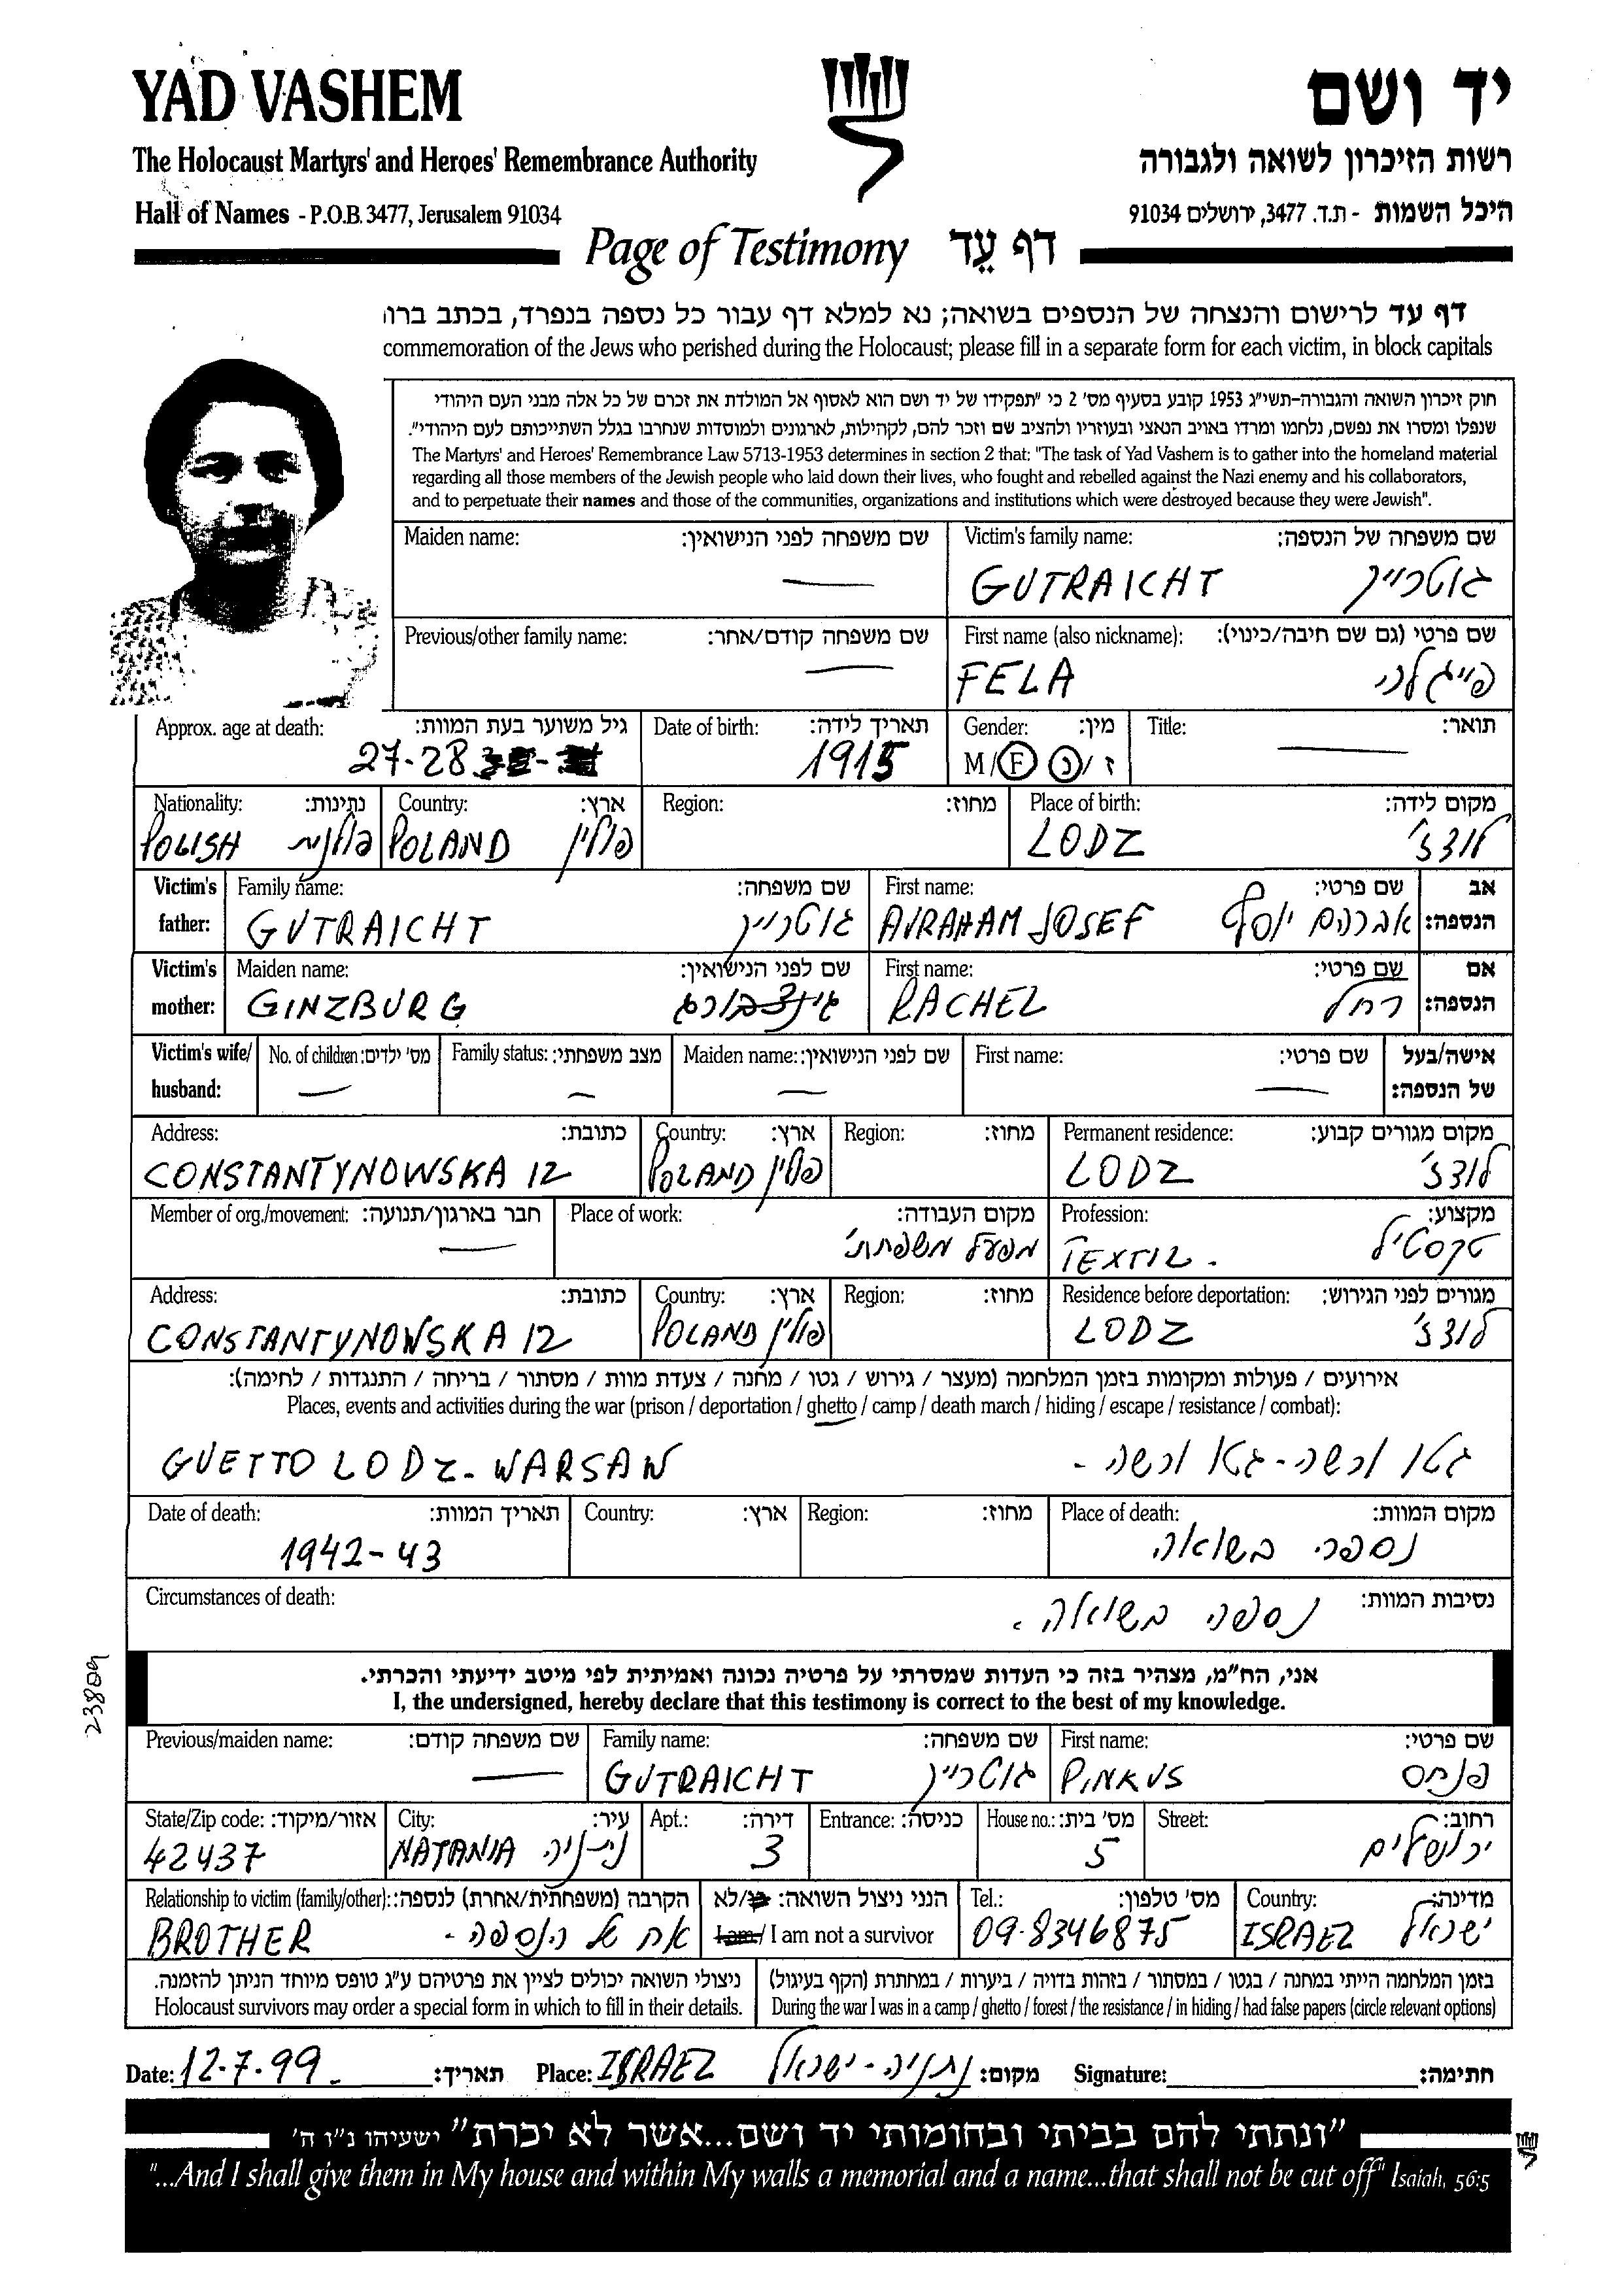 YAD VASHEM
יד ושם
The Holocaust Martyrs' and Heroes' Remembrance Authority
רשות הזיכרון לשואה ולגבורה
Hall of Names - P.O.B. 3477, Jerusalem 91034
היכל השמות - ת.ד. 3477, ירושלים 91034
Page of Testimony דף עֵד
דף עד לרישום והנצחה של הנספים בשואה; נא למלא דף עבור כל נספה בנפרד, בכתב ברו
commemoration of the Jews who perished during the Holocaust; please fill in a separate form for each victim, in block capitals
חוק זיכרון השואה והגבורה-תשי"ג 1953 קובע בסעיף מס' 2 כי "תפקידו של יד ושם הוא לאסוף אל המולדת את זכרם של כל אלה מבני העם היהודי
שנפלו ומסרו את נפשם, נלחמו ומרדו באויב הנאצי ובעוזריו ולהציב שם וזכר להם, לקהילות, לארגונים ולמוסדות שנחרבו בגלל השתייכותם לעם היהודי".
The Martyrs' and Heroes' Remembrance Law 5713-1953 determines in section 2 that: "The task of Yad Vashem is to gather into the homeland material
regarding all those members of the Jewish people who laid down their lives, who fought and rebelled against the Nazi enemy and his collaborators,
and to perpetuate their names and those of the communities, organizations and institutions which were destroyed because they were Jewish".
Maiden name: שם משפחה לפני הנישואין: Victim's family name: שם משפחה של הנספה:
GUTRAICHT גוטרייך
Previous/other family name: שם משפחה קודם/אחר: First name (also nickname): שם פרטי (גם שם חיבה/כינוי):
FELA
Approx. age at death: גיל משוער בעת המוות: Date of birth: תאריך לידה: Gender: מין: Title: תואר:
27-28 1915 M / F ז / נ
Nationality: נתינות: Country: ארץ: Region: מחוז: Place of birth: מקום לידה:
POLISH פולנית POLAND פולין LODZ לודז'
Victim's father: Family name: שם משפחה: First name: שם פרטי: אב הנספה:
GUTRAICHT גוטרייך AVRAHAM JOSEF אברהם יוסף
Victim's mother: Maiden name: שם לפני הנישואין: First name: שם פרטי: אם הנספה:
GINZBURG גינצבורג RACHEL רחל
Victim's wife/ husband: No. of children: מס' ילדים: Family status: מצב משפחתי: Maiden name: שם לפני הנישואין: First name: שם פרטי: אישה/בעל של הנספה:
Address: כתובת: Country: ארץ: Region: מחוז: Permanent residence: מקום מגורים קבוע:
CONSTANTYNOWSKA 12 POLAND פולין LODZ לודז'
Member of org./movement: חבר בארגון/תנועה: Place of work: מקום העבודה: Profession: מקצוע:
מפעל משפחתי TEXTIL. טקסטיל
Address: כתובת: Country: ארץ: Region: מחוז: Residence before deportation: מגורים לפני הגירוש:
CONSTANTYNOWSKA 12 POLAND פולין LODZ לודז'
אירועים / פעולות ומקומות בזמן המלחמה (מעצר / גירוש / גטו / מחנה / צעדת מוות / מסתור / בריחה / התנגדות / לחימה):
Places, events and activities during the war (prison / deportation / ghetto / camp / death march / hiding / escape / resistance / combat):
GUETTO LODZ - WARSAW
Date of death: תאריך המוות: Country: ארץ: Region: מחוז: Place of death: מקום המוות:
1942-43 נספה בשואה
Circumstances of death: נסיבות המוות:
נספה בשואה.
23809
אני, הח"מ, מצהיר בזה כי העדות שמסרתי על פרטיה נכונה ואמיתית לפי מיטב ידיעתי והכרתי.
I, the undersigned, hereby declare that this testimony is correct to the best of my knowledge.
Previous/maiden name: שם משפחה קודם: Family name: שם משפחה: First name: שם פרטי:
GUTRAICHT גוטרייך PINKUS פנחס
State/Zip code: אזור/מיקוד: City: עיר: Apt.: דירה: Entrance: כניסה: House no.: מס' בית: Street: רחוב:
42437 NATANIA נתניה 3 5 ירושלים
Relationship to victim (family/other): הקרבה (משפחתית/אחרת) לנספה: הנני ניצול השואה: כן/לא Tel.: מס' טלפון: Country: מדינה:
BROTHER אח של הנספה - I am / I am not a survivor 09-8346875 ISRAEL ישראל
ניצולי השואה יכולים לציין את פרטיהם ע"ג טופס מיוחד הניתן להזמנה. בזמן המלחמה הייתי במחנה / בגטו / במסתור / בזהות בדויה / ביערות / במחתרת (הקף בעיגול)
Holocaust survivors may order a special form in which to fill in their details. During the war I was in a camp / ghetto / forest / the resistance / in hiding / had false papers (circle relevant options)
Date: 12-7-99 תאריך: Place: ISRAEL נתניה - ישראל מקום: Signature: חתימה:
"ונתתי להם בביתי ובחומותי יד ושם...אשר לא יכרת" ישעיהו נ"ו ה'
"...And I shall give them in My house and within My walls a memorial and a name...that shall not be cut off" Isaiah, 56:5